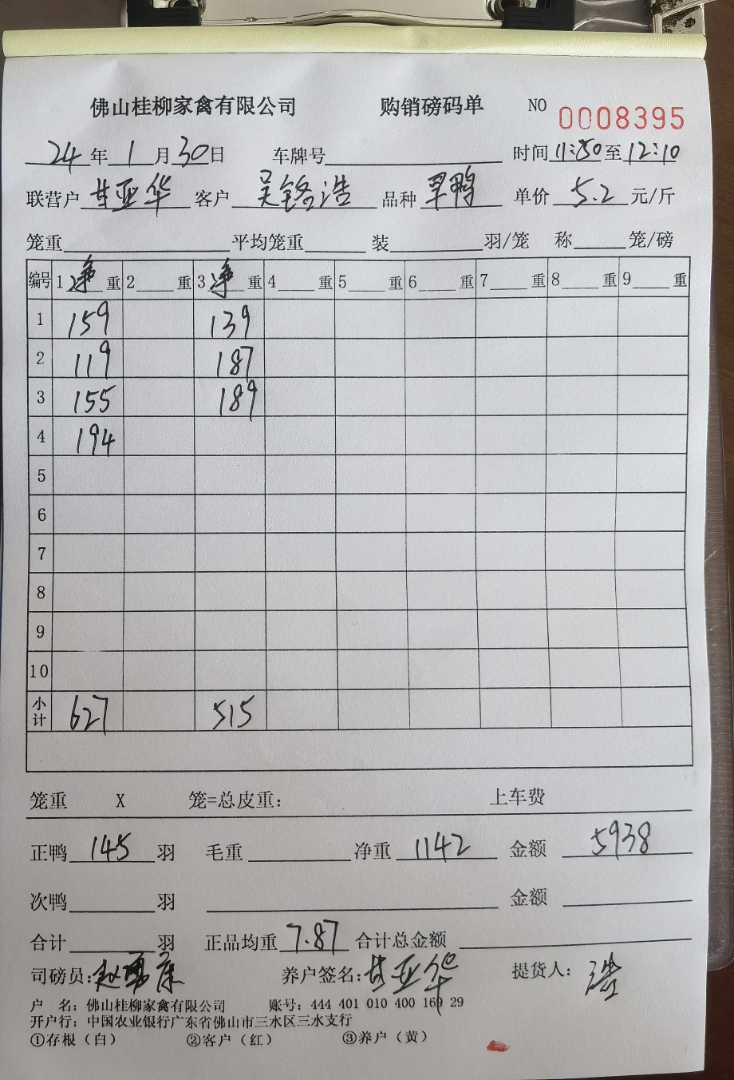 佛山桂柳家禽有限公司 购销磅码单 NO 0008395
24年1月30日 车牌号 时间11:50至12:10
联营户 甘亚华 客户 吴铭浩 品种 旱鸭 单价 5.2 元/斤
笼重 平均笼重 装 羽/笼 称 笼/磅
编号 1净重 2 重 3净重 4 重 5 重 6 重 7 重 8 重 9 重
1 159 139
2 119 187
3 155 189
4 194
5
6
7
8
9
10
小计 627 515
笼重 X 笼=总皮重: 上车费
正鸭 145 羽 毛重 净重 1142 金额 5938
次鸭 羽 金额
合计 羽 正品均重 7.87 合计总金额
司磅员: 赵 康 养户签名: 甘亚华 提货人: 浩
户 名: 佛山桂柳家禽有限公司 账号: 444 401 010 400 169 29
开户行: 中国农业银行广东省佛山市三水区三水支行
①存根(白) ②客户(红) ③养户(黄)